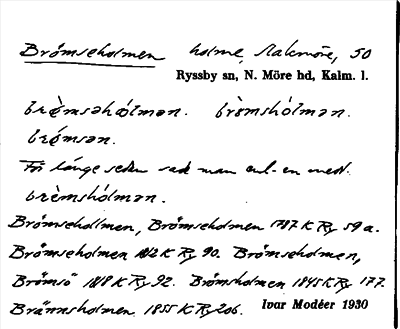 Brömseholmen holme, Stakmöre, 50
Ryssby sn, N. Möre hd, Kalm. l.
brèmsəhólmən. brömshólmən.
brómsən.
För länge sedan sade man enl. en medd.
brèmshólmən.
Brömsehollmen, Brömseholmen 1787 K Ry 59a.
Brömseholmen 1812 K Ry 90. Brömseholmen,
Brömsö 1818 K Ry 92. Brömsholmen 1845 K Ry 177.
Brännsholmen 1855 K Ry 206. Ivar Modéer 1930